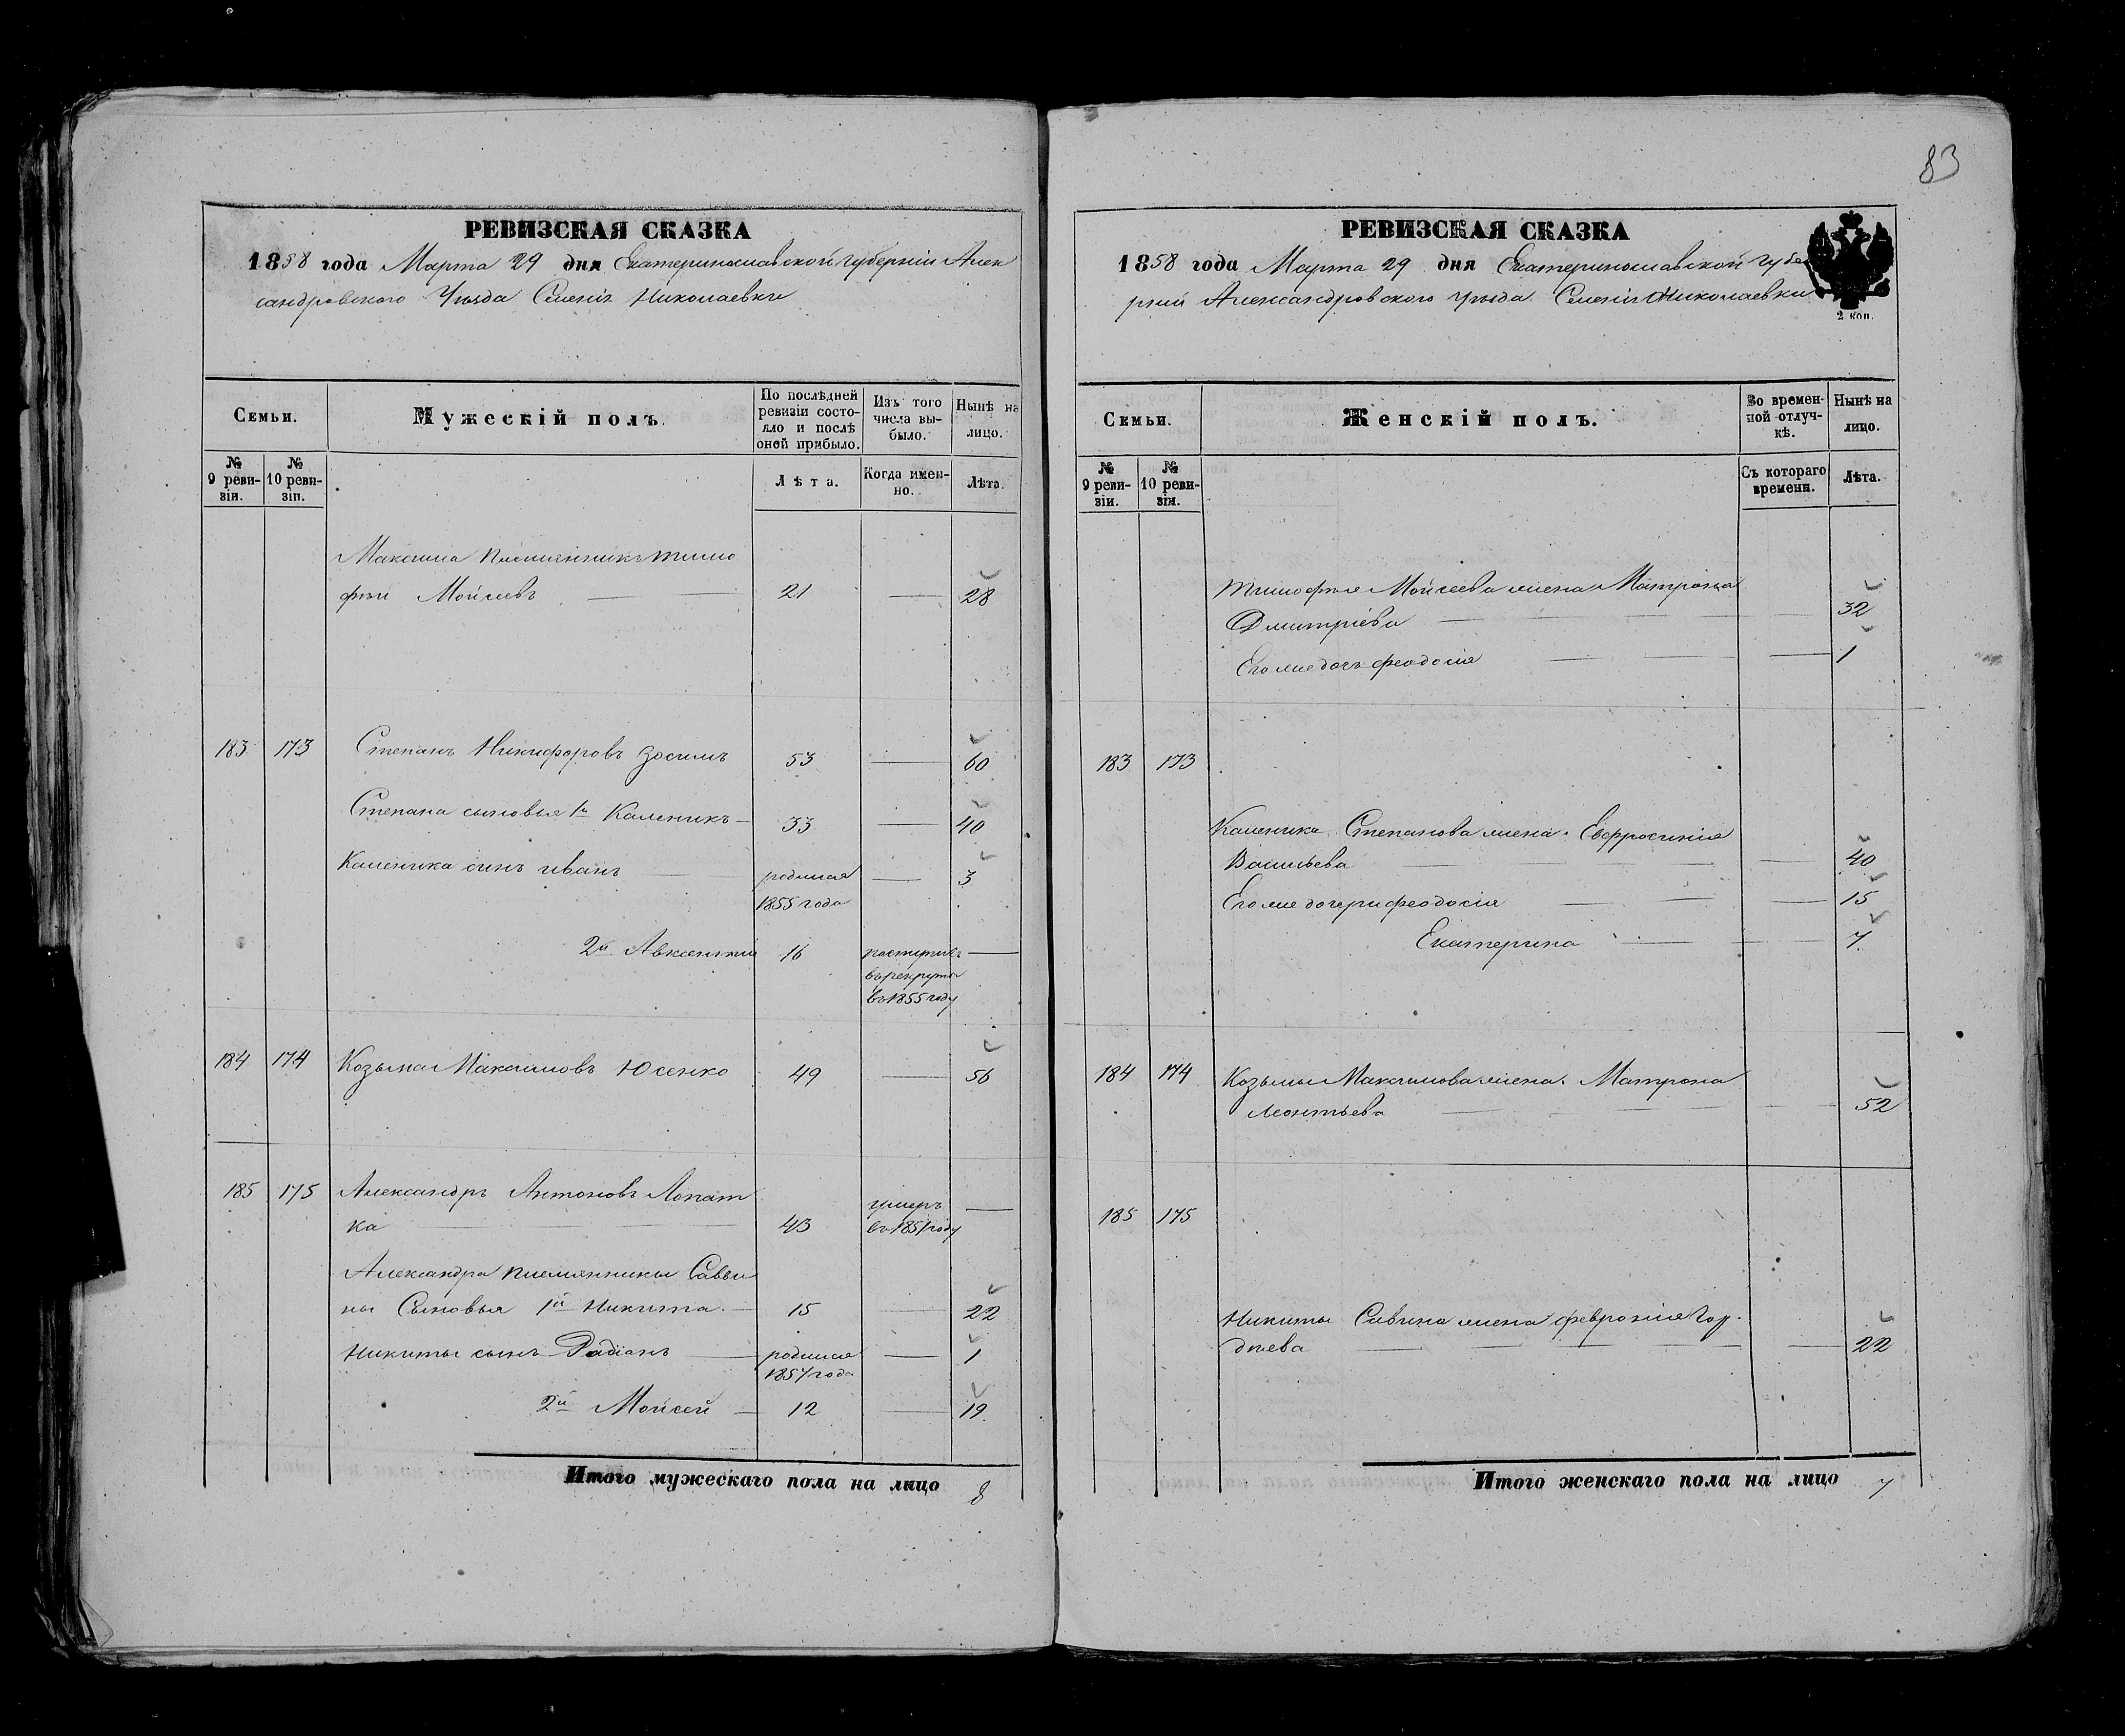 83
РЕВИЗСКАЯ СКАЗКА
1858 года Марта 29 дня Екатеринославской губернии Алек
сандровского Уезда Селенія Николаевки
Семьи.
Мужескій полъ.
По послѣдней ревизіи состояло и послѣ оной прибыло.
Изъ того числа выбыло.
Нынѣ на лицо.
№ 9 ревизіи.
№ 10 ревизіи.
Лѣта.
Когда именно.
Лѣта.
Максима племянникъ Тимо
фей Мойсеевъ 21 — 28
183 173 Степанъ Никифоровъ Зосимъ 53 — 60
Степана сыновья 1й Каленикъ 33 — 40
Каленика сынъ иванъ родился — 3
1855 года
2й Авксентий 16 поступилъ —
въ рекруты
въ 1855 году
184 174 Козьма Максимовъ Юсенко 49 — 56
185 175 Александръ Антоновъ Лопат
ка 43 умеръ —
въ 1851 году
Александра племянники Савви
ны Сыновья 1й Никита 15 — 22
Никиты сынъ Радіонъ родился — 1
1857 года
2й Мойсей 12 — 19
Итого мужескаго пола на лицо 8
РЕВИЗСКАЯ СКАЗКА
1858 года Марта 29 дня Екатеринославской губе
рний Александровского уезда Селенія Николаевки
2 коп.
Семьи.
Женскій полъ.
Во временной отлучкѣ.
Нынѣ на лицо.
№ 9 ревизіи.
№ 10 ревизіи.
Съ котораго времени.
Лѣта.
Тимофея Мойсеева жена Матрона
Дмитріева — 32
Его же дочь феодосія — 1
183 173
Каленика Степанова жена Евфросинія
Васильева — 40
Его же дочери феодосія — 15
Екатерина — 7
184 174 Козьмы Максимова жена Матрона
Леонтьева — 52
185 175
Никиты Савина жена феврония Гор
дѣева — 22
Итого женскаго пола на лицо 7